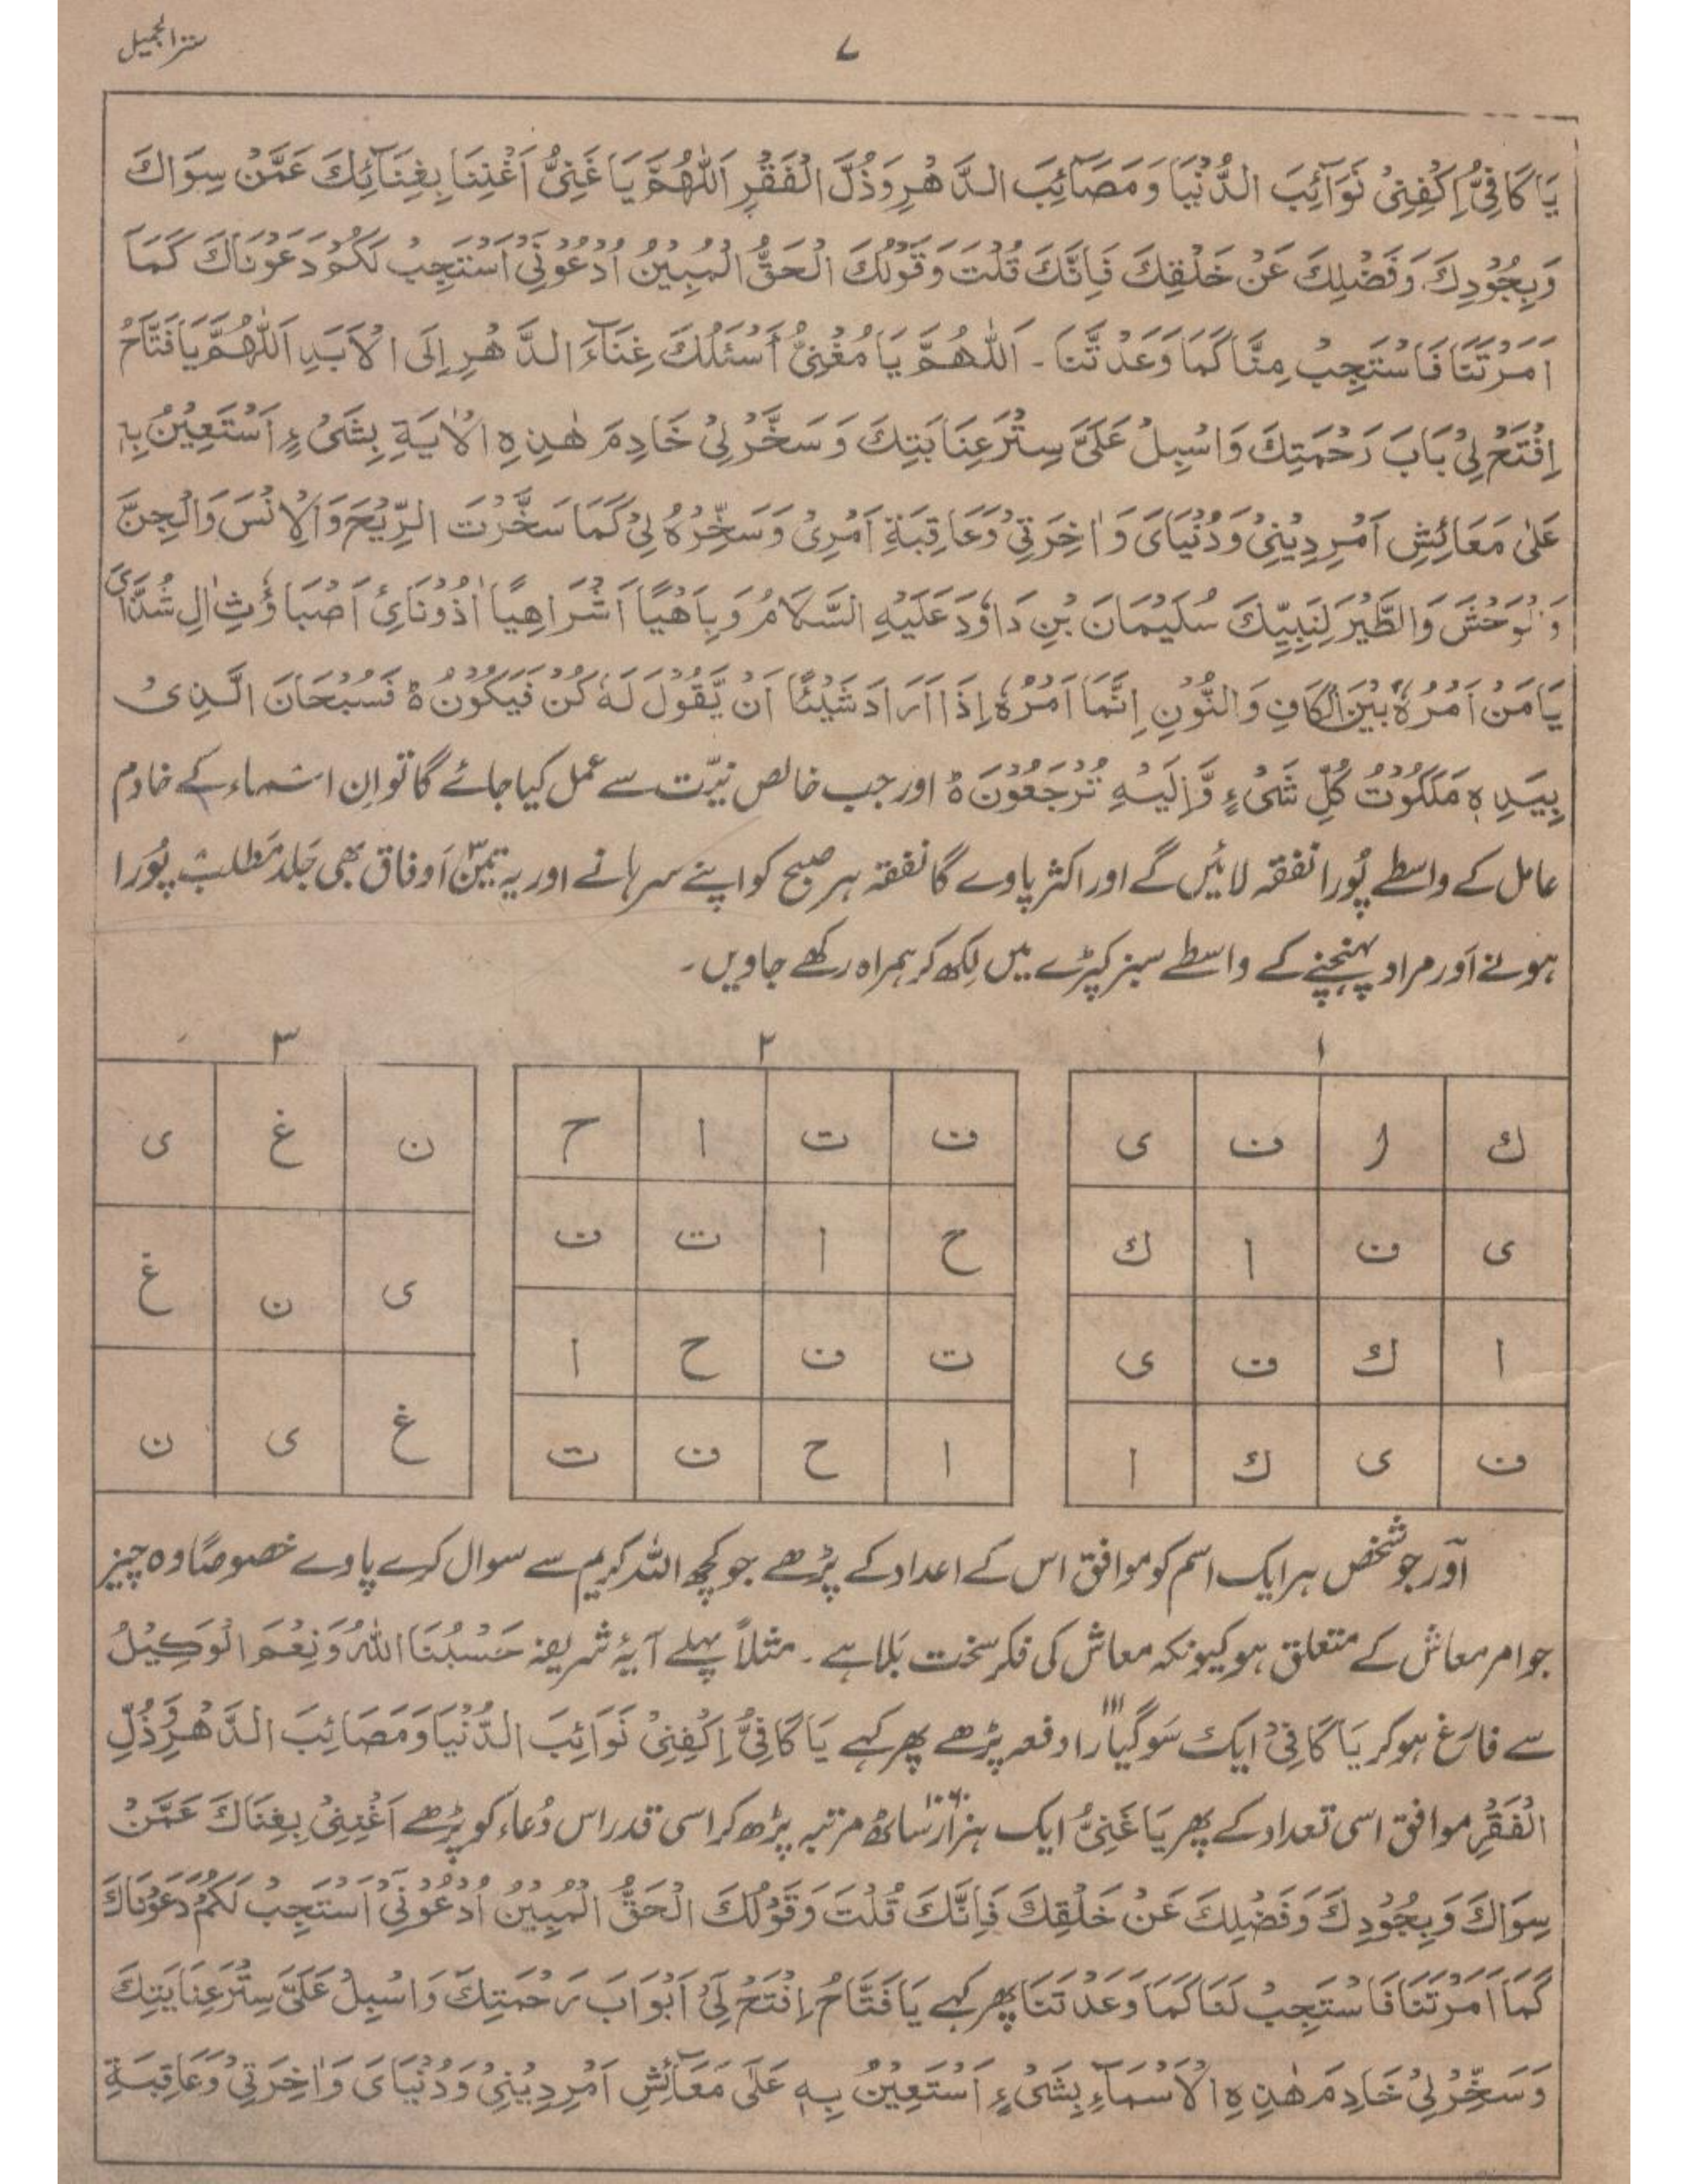 ۷
سترالجمیل
يَا كَافِيُّ اِكْفِنِيْ نَوَآئِبَ الدُّنْيَا وَمَصَآئِبَ الدَّهْرِ وَذُلَّ الْفَقْرِ اَللّٰهُمَّ يَا غَنِيُّ اَغْنِنَا بِغِنَآئِكَ عَمَّنْ سِوَاكَ
وَبِجُوْدِكَ وَفَضْلِكَ عَنْ خَلْقِكَ فَاِنَّكَ قُلْتَ وَقَوْلُكَ الْحَقُّ الْمُبِيْنُ اُدْعُوْنِيْ اَسْتَجِبْ لَكُمْ دَعَوْنَاكَ كَمَا
اَمَرْتَنَا فَاسْتَجِبْ مِنَّا كَمَا وَعَدْتَّنَا ۔ اَللّٰهُمَّ يَا مُغْنِيُّ اَسْئَلُكَ غِنَآءَ الدَّهْرِ اِلَى الْاَبَدِ اَللّٰهُمَّ يَا فَتَّاحُ
اِفْتَحْ لِيْ بَابَ رَحْمَتِكَ وَاسْبِلْ عَلَيَّ سِتْرَ عِنَايَتِكَ وَسَخِّرْ لِيْ خَادِمَ هٰذِهِ الْاٰيَةِ بِشَيْءٍ اَسْتَعِيْنُ بِهٖ
عَلٰى مَعَائِشِ اَمْرِ دِيْنِيْ وَدُنْيَايَ وَاٰخِرَتِيْ وَعَاقِبَةِ اَمْرِيْ وَسَخِّرْهُ لِيْ كَمَا سَخَّرْتَ الرِّيْحَ وَالْاِنْسَ وَالْجِنَّ
وَالْوَحْشَ وَالطَّيْرَ لِنَبِيِّكَ سُلَيْمَانَ بْنِ دَاوٗدَ عَلَيْهِ السَّلَامُ وَبِاَهْيًا اَشْرَاهِيًا اَذُوْنَائِ اَصْبَاؤُثِ اٰلِ شَدَّايَ
يَا مَنْ اَمْرُهٗ بَيْنَ الْكَافِ وَالنُّوْنِ اِنَّمَا اَمْرُهٗ اِذَا اَرَادَ شَيْئًا اَنْ يَّقُوْلَ لَهٗ كُنْ فَيَكُوْنُ ۃ فَسُبْحَانَ الَّذِيْ
بِيَدِهٖ مَلَكُوْتُ كُلِّ شَيْءٍ وَّاِلَيْهِ تُرْجَعُوْنَ ۃ اور جب خالص نیّت سے عمل کیا جائے گا تو اِن اسماء کے خادم
عامل کے واسطے پُورا نفقہ لائیں گے اور اکثر پاوے گا نفقہ ہر صبح کو اپنے سرہانے اور یہ تین۳ اَوفاق بھی جَلد مَطلب پُورا
ہونے اَور مراد پہنچنے کے واسطے سبز کپڑے میں لِکھ کر ہمراہ رکھے جاویں۔
۱ ۲ ۳
ك ا ف ی ف ت ا ح ن غ ی
ی ف ا ك ح ا ت ف ی ن غ
ا ك ف ی ت ف ح ا غ ی ن
ف ی ك ا ا ح ف ت
اَور جو شخص ہر ایک اسم کو موافق اس کے اعداد کے پڑھے جو کچھ اللہ کریم سے سوال کرے پاوے خصوصًا وہ چیز
جو امر معاش کے متعلق ہو کیونکہ معاش کی فکر سخت بَلا ہے۔ مثلاً پہلے آیۂ شریفہ حَسْبُنَا اللّٰهُ وَنِعْمَ الْوَكِيْلُ
سے فارغ ہو کر يَا كَافِيْ ایک سَو گیارا۱۱۱ دفعہ پڑھے پھر کہے يَا كَافِيُّ اِكْفِنِيْ نَوَائِبَ الدُّنْيَا وَمَصَائِبَ الدَّهْرِ وَذُلِّ
الْفَقْرِ موافق اسی تعداد کے پھر يَا غَنِيُّ ایک ہزار ساٹھ۱۰۶۰ مرتبہ پڑھ کر اسی قدر اس دُعاء کو پڑھے اَغْنِنِيْ بِغِنَاكَ عَمَّنْ
سِوَاكَ وَبِجُوْدِكَ وَفَضْلِكَ عَنْ خَلْقِكَ فَاِنَّكَ قُلْتَ وَقَوْلُكَ الْحَقُّ الْمُبِيْنُ اُدْعُوْنِيْ اَسْتَجِبْ لَكُمْ دَعَوْنَاكَ
كَمَا اَمَرْتَنَا فَاسْتَجِبْ لَنَا كَمَا وَعَدْتَنَا پھر کہے يَا فَتَّاحُ اِفْتَحْ لِيْ اَبْوَابَ رَحْمَتِكَ وَاسْبِلْ عَلَيَّ سِتْرَ عِنَايَتِكَ
وَسَخِّرْ لِيْ خَادِمَ هٰذِهِ الْاَسْمَآءِ بِشَيْءٍ اَسْتَعِيْنُ بِهٖ عَلٰى مَعَآئِشِ اَمْرِ دِيْنِيْ وَدُنْيَايَ وَاٰخِرَتِيْ وَعَاقِبَةِ